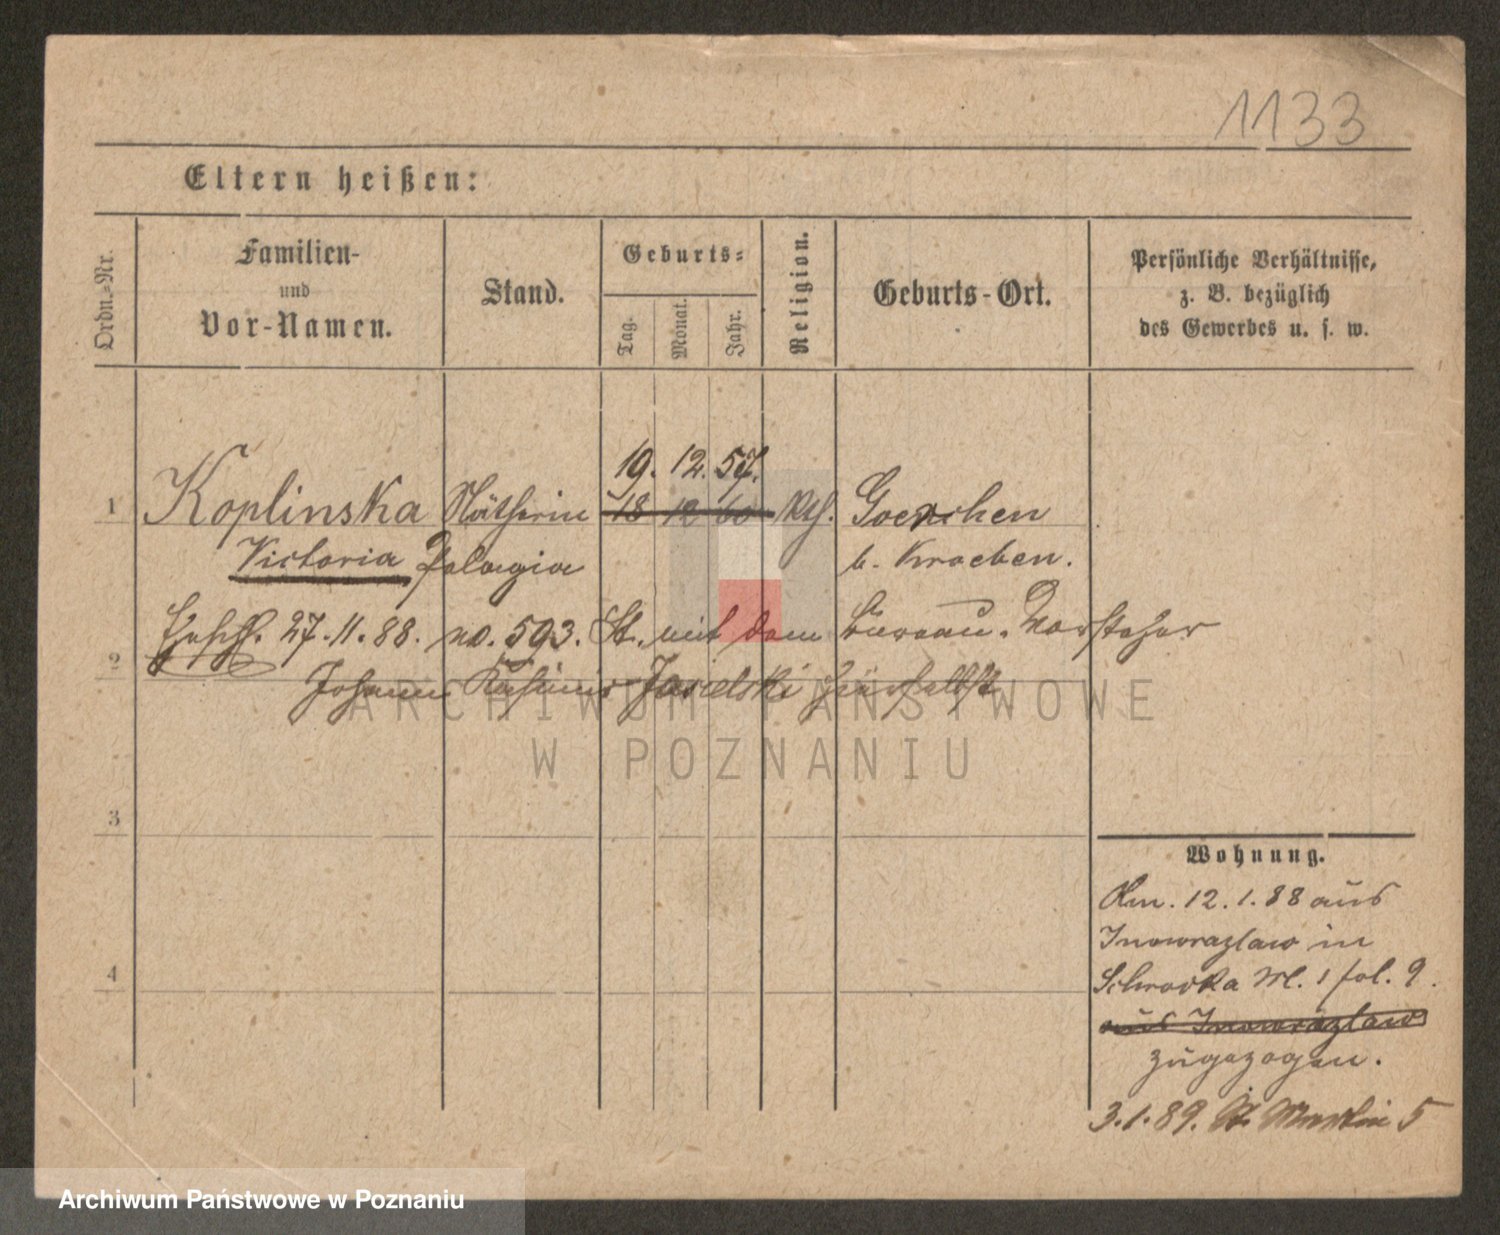 1133
Eltern heißen:
Ordn.-Nr.
Familien-
und
Vor-Namen.
Stand.
Geburts-
Tag.
Monat.
Jahr.
Religion.
Geburts-Ort.
Persönliche Verhältnisse,
z. B. bezüglich
des Gewerbes u. s. w.
19. 12. 57.
1 Koplinska Nätherin 18 12 60 Kth. Goerchen
Victoria Pelagia b. Kroeben.
27.11.88. no. 593. St. mit dem Bureau-Vorsteher
2
Johann Kasimir Jasielski hierselbst
ARCHIWUM PAŃSTWOWE
W POZNANIU
3
Wohnung.
Am. 12.1.88 aus
Inowrazlaw in
4
Schrodka Nr. 1 fol. 9.
aus Inowrazlaw
zugezogen.
3.1.89. St. Martin 5
Archiwum Państwowe w Poznaniu